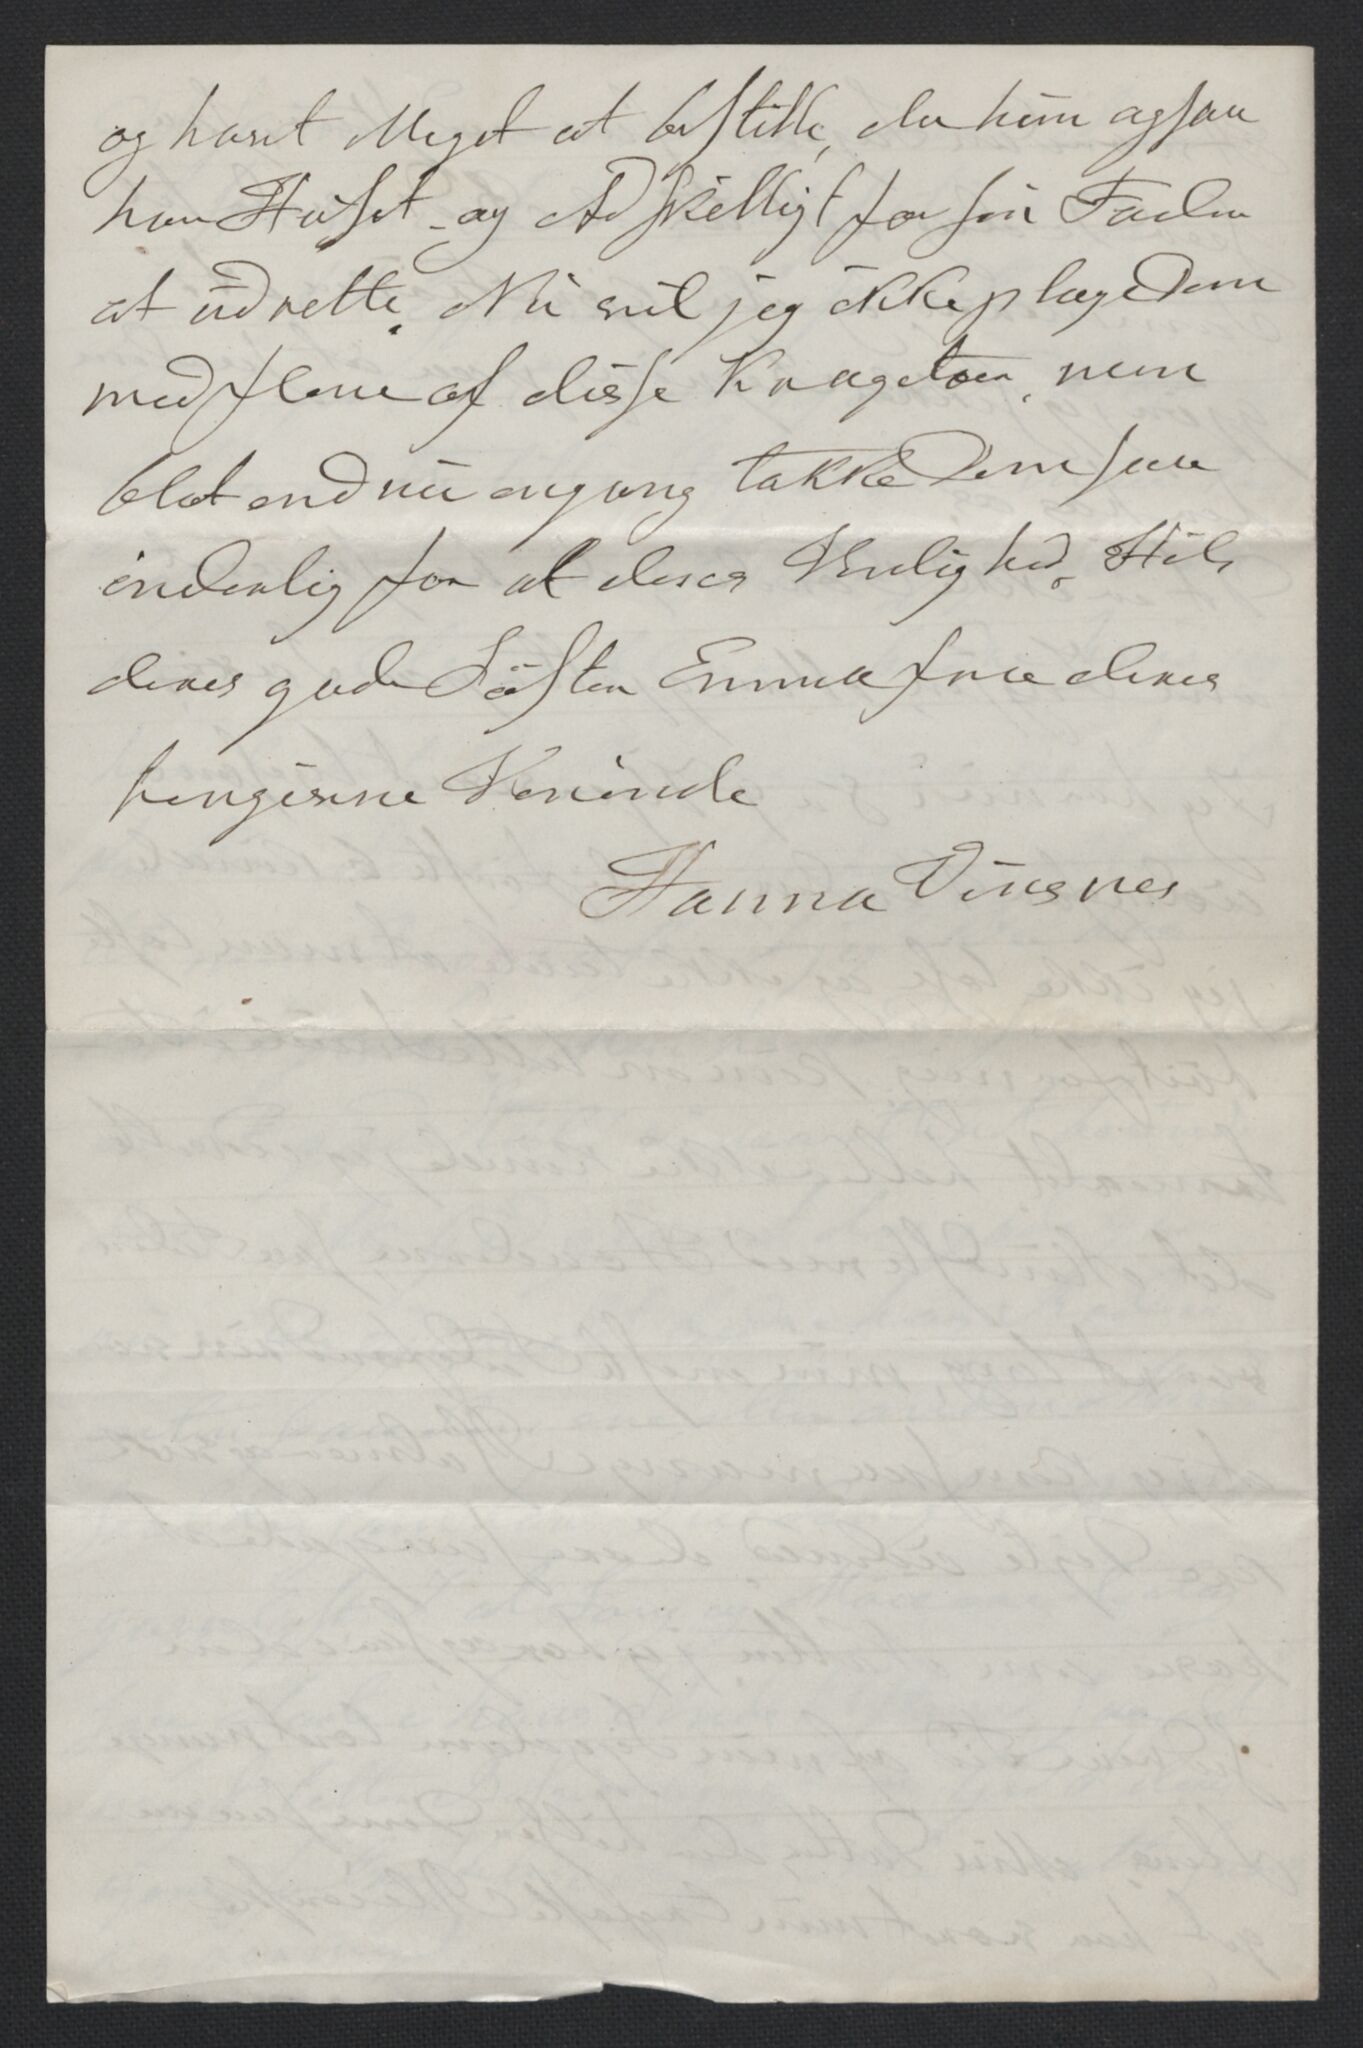 og havt Meget at bestille, da hun ogsaa
har Huset og Adskilligt for sin Fader
at udrette. Nu vil jeg ikke plage Dem
med flere af disse Kragetær, men
blot endnu engang takke Dem saa
inderlig for al deres Venlighed. Hils
deres gode Søster Emma fra deres
hengivne Veninde
Hanna Winsnes